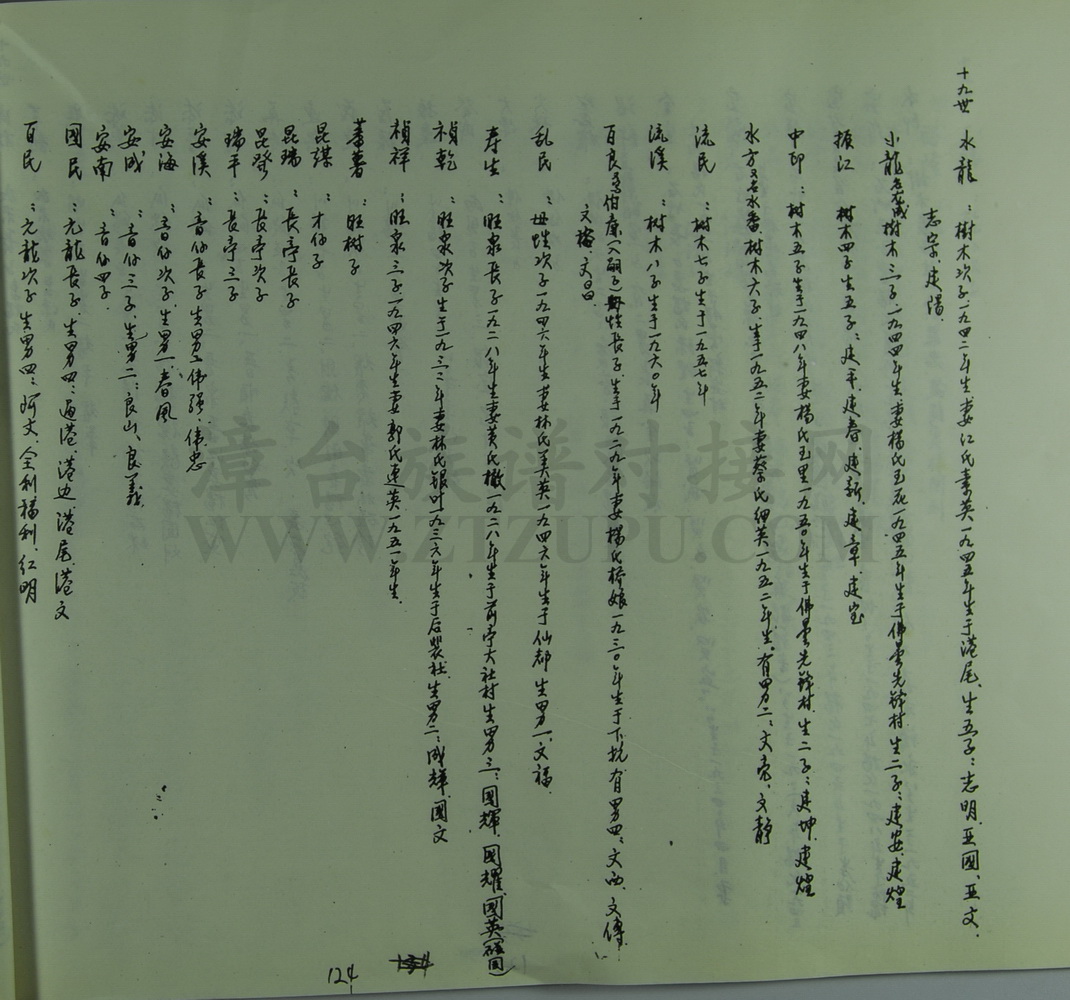 十九世 水龍：樹木次子.一九四二年生妻江氏素英.一九四五年生于港尾.生五子：志明.亚國.亚文.
志宗.建陽.
小龍 樹木三子.一九四四年生妻楊氏玉花一九四五年生于佛曇先鋒村.生二子：建安.建煌
振江 樹木四子生五子：建平.建春.建新.建章.建宝
中印：樹木五子生于一九四八年妻楊氏玉里一九五〇年生于佛曇先鋒村.生二子：建坤.建煌
水方又名水番.樹木六子.生于一九五二年妻蔡氏细英一九五二年生.有男二：文亮.文静
流民：樹木七子生于一九五七年
流溪：樹木八子生于一九六〇年
百良 長子.生于一九二九年妻楊氏桥娘一九三〇年生于下坑.有男四：文西.文傳
文 .文昌.
乱民： 次子一九四六年生妻林氏美英一九四六年生于仙都.生男一.文福.
寿生：旺泉長子.一九二八年生妻黄氏橄一九二八年生于前亭大社村生男三：國輝.國耀.國英
禎乾：旺泉次子生于一九三二年妻林氏银叶一九三六年生于后裴社.生男二：成輝.國文
禎祥：旺泉三子.一九四六年生妻郭氏連英一九五一年生.
蕃薯：旺樹子
昆謀：才仔子
昆瑞：長亭長子
昆發：長亭次子
瑞平：長亭三子
安溪：音仔長子生男二伟强.伟忠
安海：音仔次子.生男一.春風
安成：音仔三子.生男二：良山、良義.
安南：音仔四子.
國民：元龍長子.生男四：通港.港边.港尾.港文
百民：元龍次子生男四：阿文.全利.福利.红明
124
漳台族谱对接网
WWW.ZTZUPU.COM